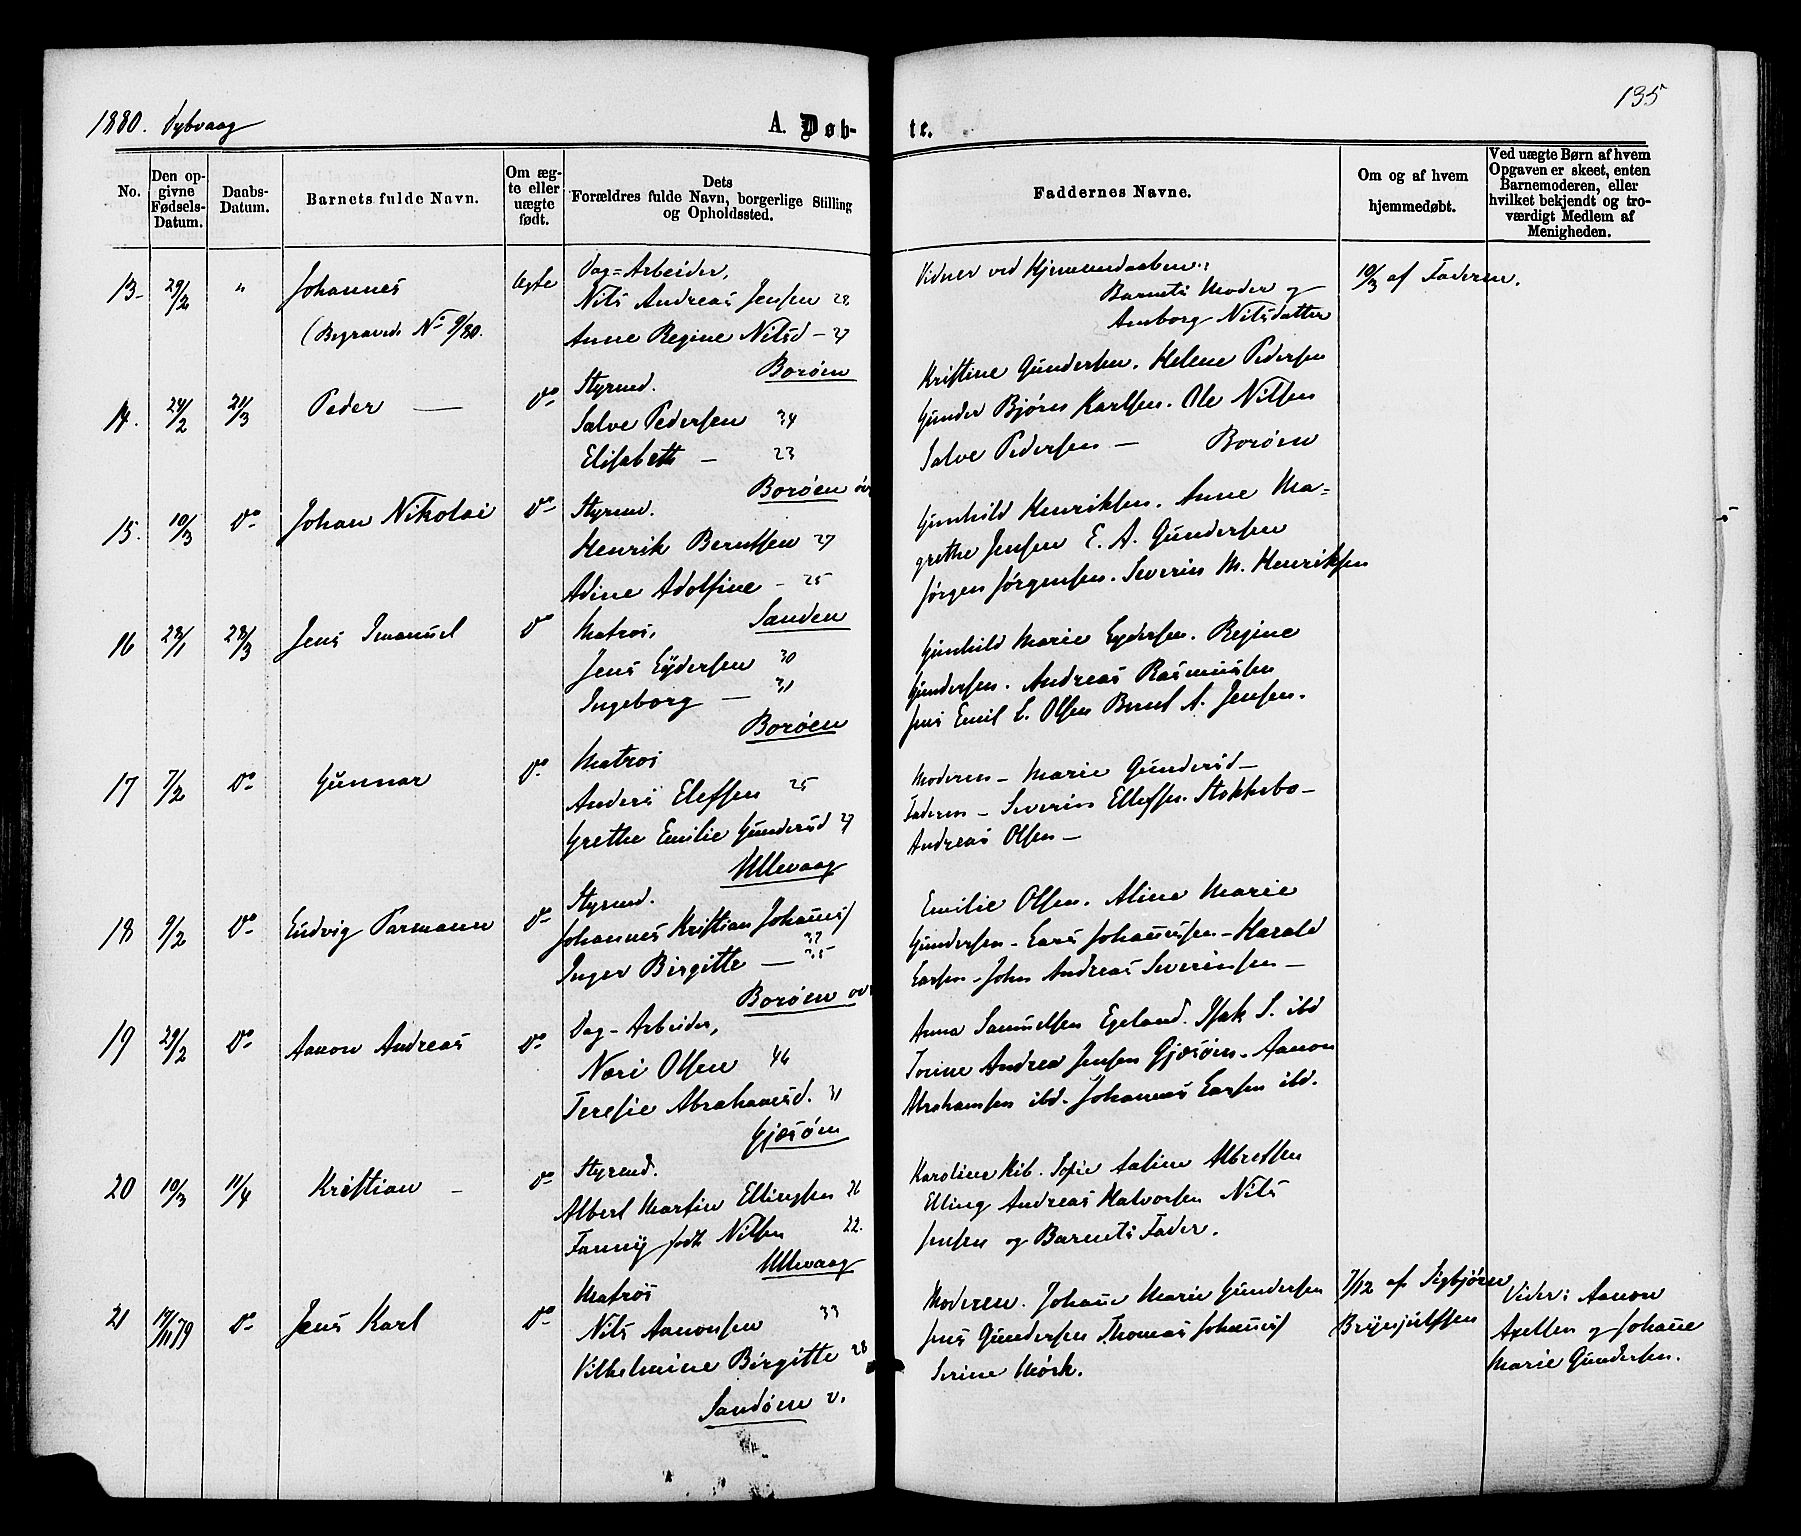 1880. Dybvaag
A. Døb-
te.
135
No.
Den op-
givne
Fødsels-
Datum.
Daabs-
Datum.
Barnets fulde Navn.
Om æg-
te eller
uægte
født.
Dets
Forældres fulde Navn, borgerlige Stilling
og Opholdssted.
Faddernes Navne.
Om og af hvem
hjemmedøbt.
Ved uægte Børn af hvem
Opgaven er skeet, enten
Barnemoderen, eller
hvilket bekjendt og tro-
værdigt Medlem af
Menigheden.
13- 29/2 " Johannes Ægte
(Begravede No 9/80.
Dag-Arbeider,
Nils Andreas Jensen 28
Anne Regine Nilsd - 27
Borøen
Vidner ved Hjemmedaaben:
Barnets Moder og
Amborg Nilsdatter
10/3 af Faderen.
14. 24/2 21/3 Peder — Do
Styrmd.
Salve Pedersen 34
Elisabeth — 23
Borøen øv
Kristine Gundersen. Helene Pedersen
Gunder Bjørn Karlsen. Ole Nilsen
Salve Pedersen — Borøen
15. 10/3 Do Johan Nikolai Do
Styrmd.
Henrik Berntsen 27
Adine Adolfine - 25
Sanden
Gunhild Henriksen. Anne Ma=
grethe Jensen E. A. Gundersen
Jørgen Jørgensen. Severin M. Henriksen
16 28/1 28/3 Jens Imanuel Do
Matros,
Jens Eydersen 30
Ingeborg — 31
Borøen
Gunhild Marie Eydersen. Regine
Gundersen. Andreas Rasmussen
Jens Emil E. Olsen Bernt A. Jensen.
17 7/2 Do Gunnar Do
Matros
Anders Elefsen 25
Grethe Emilie Gundersd 27
Ullevaag
Moderen — Marie Gundersd —
Faderen — Severin Ellefsen. Stokkebo —
Andreas Olsen —
18 9/2 Do Ludvig Parmann Do
Styrmd.
Johannes Kristian Johanns/ 37
Inger Birgitte — 35
Borøen øv
Emilie Olsen. Aline Marie
Gundersen — Lars Johannssen — Harald
Larsen - John Andreas Severinsen —
19 29/2 Do Aanon Andreas Do
Dag-Arbeider,
Næri Olsen 46
Teresie Abrahamsd. 31
Gjæsøen
Anna Samuelsen Egeland. Isak S. ibd
Torine Andrea Jensen Gjæsøen. Aanon
Abrahamsen ibd. Johannes Larsen ibd.
20 19/3 11/4 Kristian — Do
Styrmd.
Albert Martin Ellingsen 26
Fanny født Nilsen 22.
Ullevaag
Karoline Kib. Sofie Aasine Albretsen
Elling Andreas Halvorsen Nils
Jensen og Barnets Fader.
21 17/11 79 Do Jens Karl Do
Matros
Nils Aanonsen 33
Vilhelmine Birgitte 28
Sandøen v.
Moderen. Johanne Marie Gundersen
Jens Gundersen Thomas Johanns/
Serine Mørk.
7/12 af Sigbjørn
Brynjulfsen
Vider: Aanon
Axelsen og Johanne
Marie Gundersen.